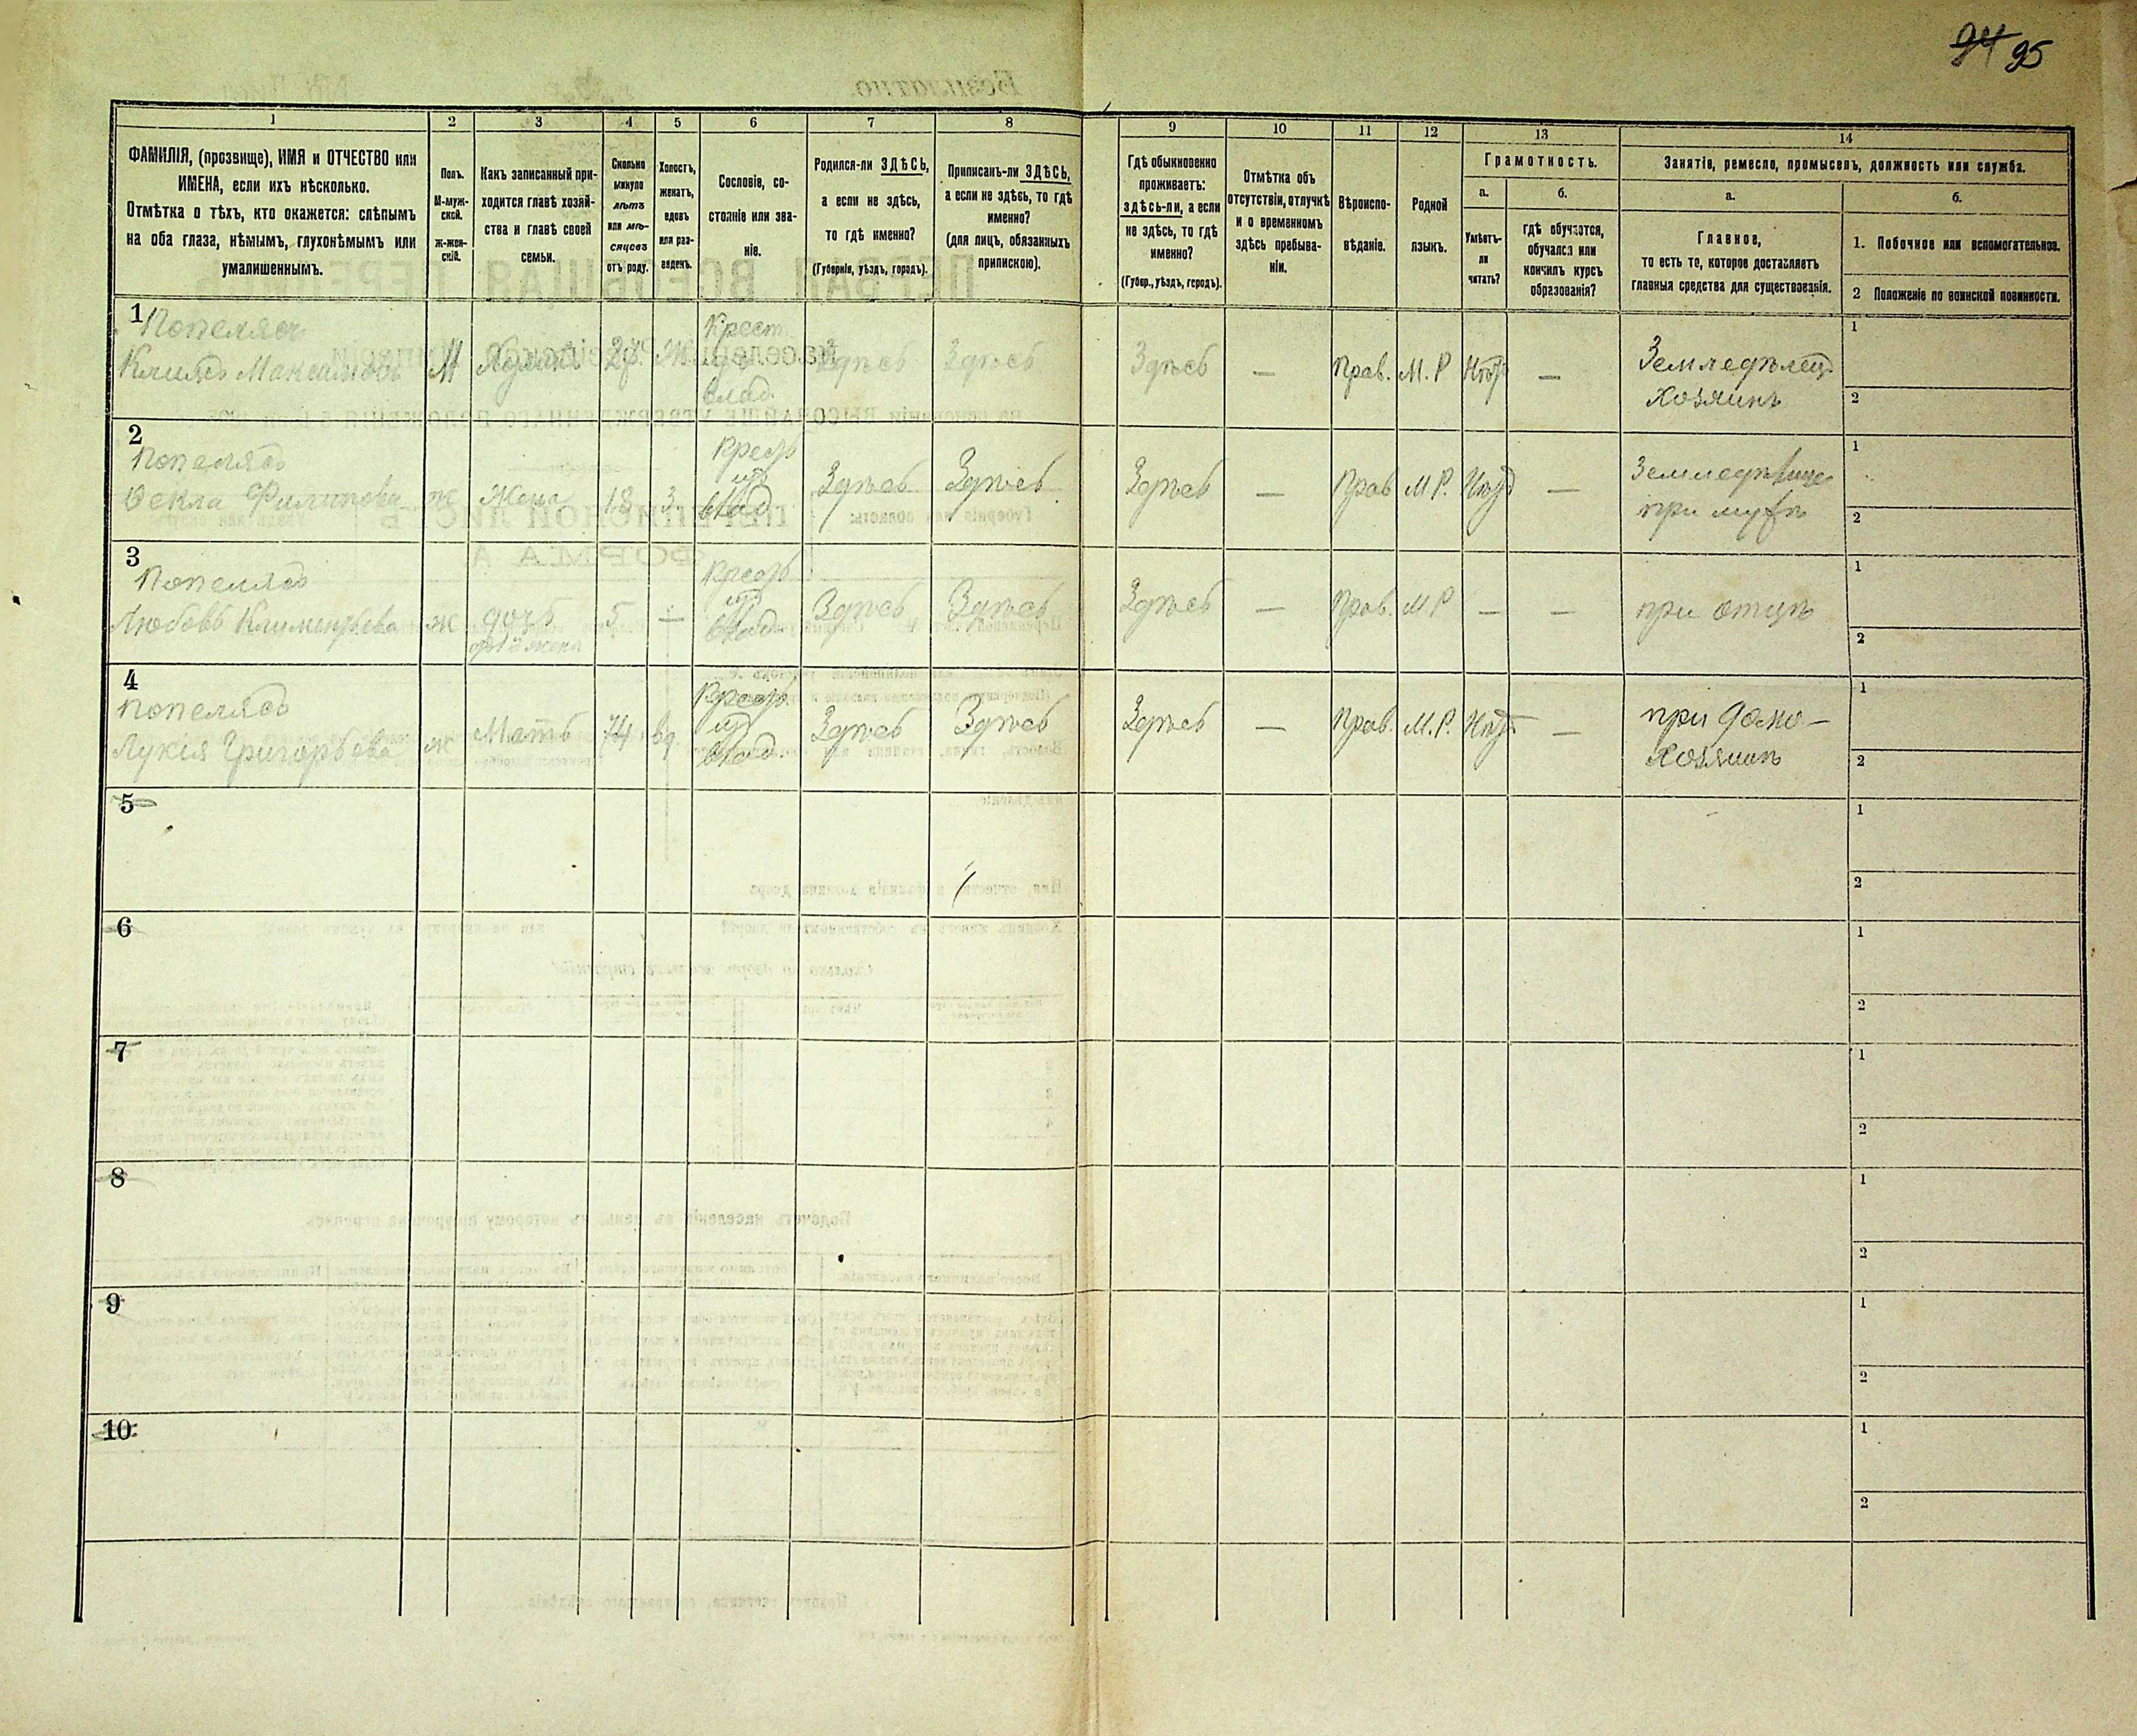 94 95
1
2
3
4
5
6
7
8
9
10
11
12
13
14
ФАМИЛІЯ, (прозвище), ИМЯ и ОТЧЕСТВО или
ИМЕНА, если ихъ нѣсколько.
Отмѣтка о тѣхъ, кто окажется: слѣпымъ
на оба глаза, нѣмымъ, глухонѣмымъ или
умалишеннымъ.
Полъ.
М-муж-
ской.
Ж-жен-
скій.
Какъ записанный при-
ходится главѣ хозяй-
ства и главѣ своей
семьи.
Сколько
минуло
лѣтъ
или мѣ-
сяцевъ
отъ роду.
Холостъ,
женатъ,
вдовъ
или раз-
веденъ.
Сословіе, со-
стояніе или зва-
ніе.
Родился-ли ЗДѢСЬ,
а если не здѣсь,
то гдѣ именно?
(Губернія, уѣздъ, городъ).
Приписанъ-ли ЗДѢСЬ,
а если не здѣсь, то гдѣ
именно?
(для лицъ, обязанныхъ
припискою).
Гдѣ обыкновенно
проживаетъ:
здѣсь-ли, а если
не здѣсь, то гдѣ
именно?
(Губер., уѣздъ, городъ).
Отмѣтка объ
отсутствіи, отлучкѣ
и о временномъ
здѣсь пребыва-
ніи.
Вѣроиспо-
вѣданіе.
Родной
языкъ.
Грамотность.
а.
Умѣетъ-
ли
читать?
б.
гдѣ обучается,
обучался или
кончилъ курсъ
образованія?
Занятіе, ремесло, промыселъ, должность или служба.
а.
Главное,
то есть то, которое доставляетъ
главныя средства для существованія.
б.
1. Побочное или вспомогательное.
2 Положеніе по воинской повинности.
1
Попеляхъ
М
Хозяинъ
Крест
влад.
Здѣсь
Здѣсь
Здѣсь
—
Прав.
М. Р
—
Земледѣлец
Хозяинъ
1
2
2
Попеляхъ
Ѳекла Филипова
ж
Жена
18
З.
влад.
Здѣсь
Здѣсь
Здѣсь
—
Прав
М Р.
—
при мужѣ
1
2
3
Попеляхъ
Любовь Климентьева
ж
дочь
отъ 1й жены
5
—
влад.
Здѣсь
Здѣсь
Здѣсь
—
Прав.
М Р
—
—
при отцѣ
1
2
4
Попеляхъ
Лукія Григорьева
ж
Мать
74
вд.
влад.
Здѣсь
Здѣсь
Здѣсь
—
Прав.
М. Р.
—
при домо-
хозяинѣ
1
2
5
1
2
6
1
2
7
1
2
8
1
2
9
1
2
10
1
2